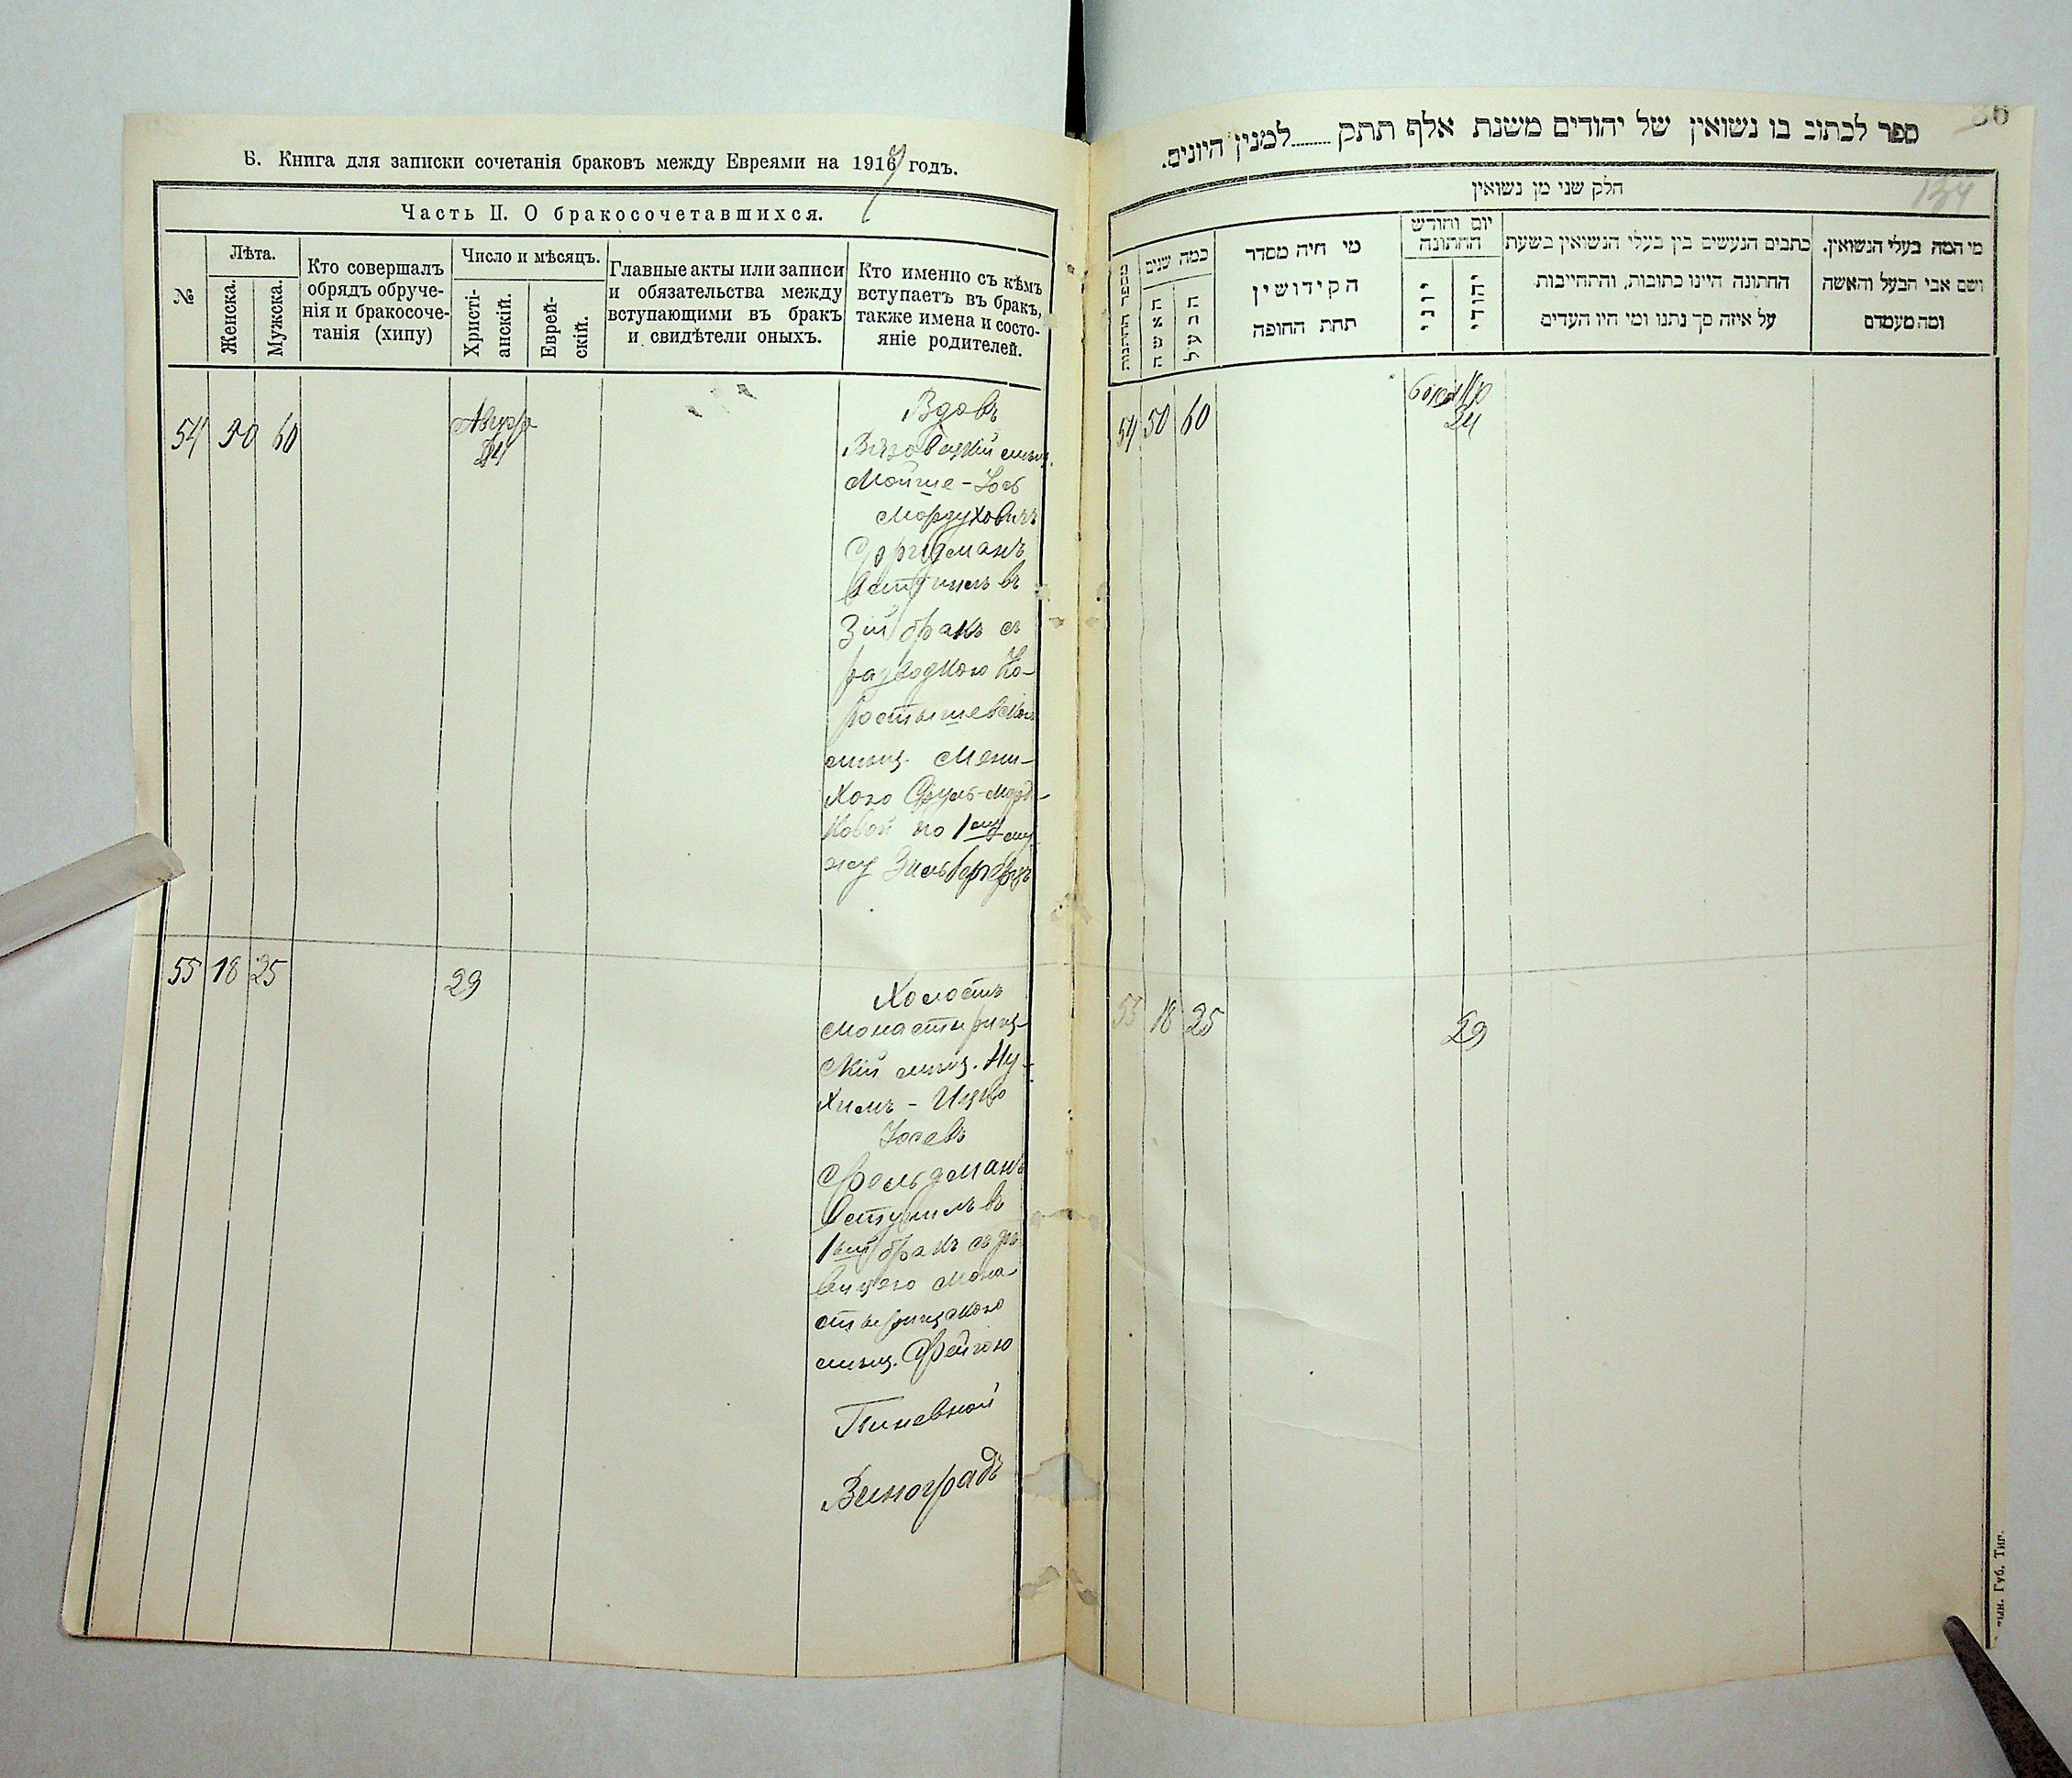 Б. Книга для записки сочетанія браковъ между Евреями на 1917 годъ.
Часть II. О бракосочетавшихся.
№
Лѣта.
Женска.
Мужска.
Кто совершалъ
обрядъ обруче-
нія и бракосоче-
танія (хипу)
Число и мѣсяцъ.
Христі-
анскій.
Еврей-
скій.
Главные акты или записи
и обязательства между
вступающими въ бракъ
и свидѣтели оныхъ.
Кто именно съ кѣмъ
вступаетъ въ бракъ,
также имена и состо-
яніе родителей.
54 50 60
24
Вдовъ
мѣщ.
Мойше-Іось
Мордуховичъ
Фридманъ
вступилъ въ
3ій бракъ съ
разводкою Ко-
ростышевскою
мѣщ. Мени-
хою Сруль-Морд-
ковой по 1му му
жу
55 18 25
29
Холостъ
Монастырищ-
скій мѣщ. Ну-
химъ-Ицко
Іосевъ
Фельдманъ
вступилъ въ
1ый бракъ съ дѣ
вицею Мона-
стырищскою
мѣщ. Фейгою
Пиневной
Виноградъ
ספר לכתוב בו נשואין של יהודים משנת אלף תתק.........למנין היונים.
36
134
חלק שני מן נשואין
מספר החתנות
כמה שנים
האשה
הבעל
מי היה מסדר
הקידושין
תחת החופה
יום וחודש
החתונה
יוני
יהודי
כתבים הנעשים בין בעלי הנשואין בשעת
החתונה היינו כתובות, והתחייבות
על איזה סך נתנו ומי היו העדים
מי המה בעלי הנשואין.
ושם אבי הבעל והאשה
ומה מעמדם
54 50 60
24
55 18 25
29
Губ. Тип.